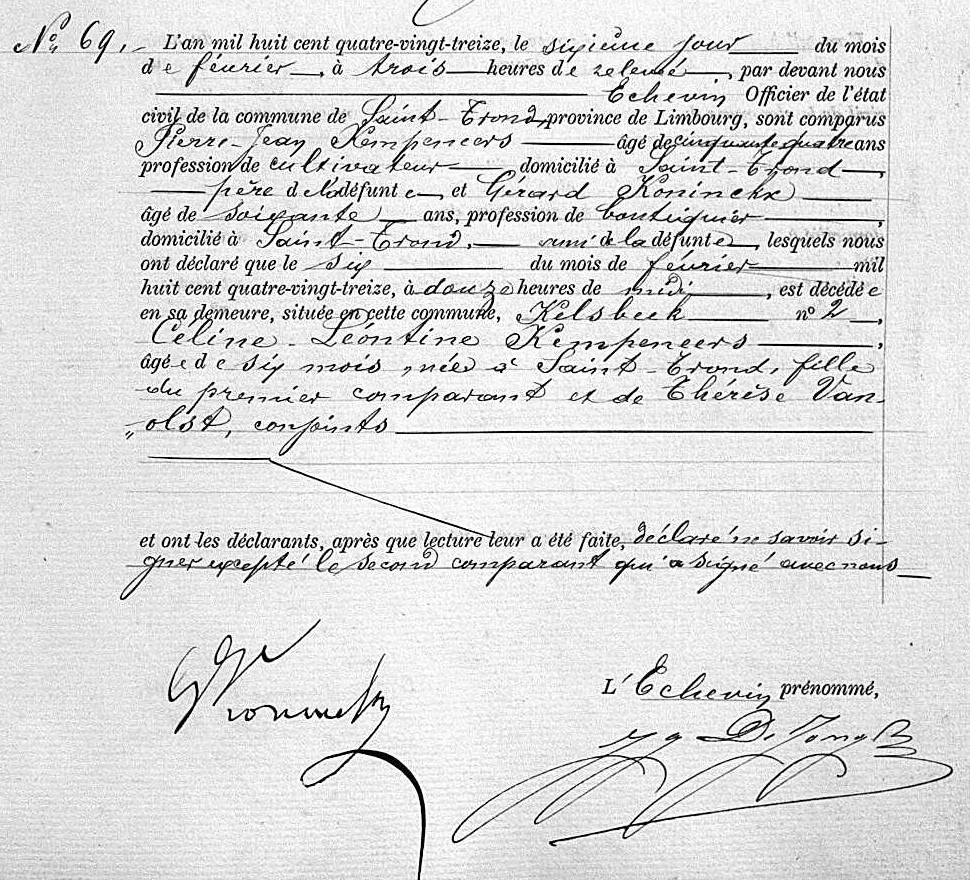 Nº 69. L'an mil huit cent quatre-vingt-treize, le sixième jour du mois
de février, à trois heures de relevée, par devant nous
Echevin Officier de l'état
civil de la commune de Saint-Trond, province de Limbourg, sont comparus
Pierre-Jean Kempeneers âgé de cinquante quatre ans
profession de cultivateur domicilié à Saint-Trond,
père de la défunte et Gérard Koninckx
âgé de soixante ans, profession de boutiquier,
domicilié à Saint-Trond, ami de la défunte, lesquels nous
ont déclaré que le six du mois de février mil
huit cent quatre-vingt-treize, à douze heures de midi, est décédée
en sa demeure, située en cette commune, Kelsbeek nº 2,
Céline-Léontine Kempeneers,
âgée de six mois, née à Saint-Trond, fille
du premier comparant et de Thérèse Van-
„olst, conjoints
et ont les déclarants, après que lecture leur a été faite, déclaré ne savoir si-
gner excepté le second comparant qui a signé avec nous
L'Echevin prénommé,